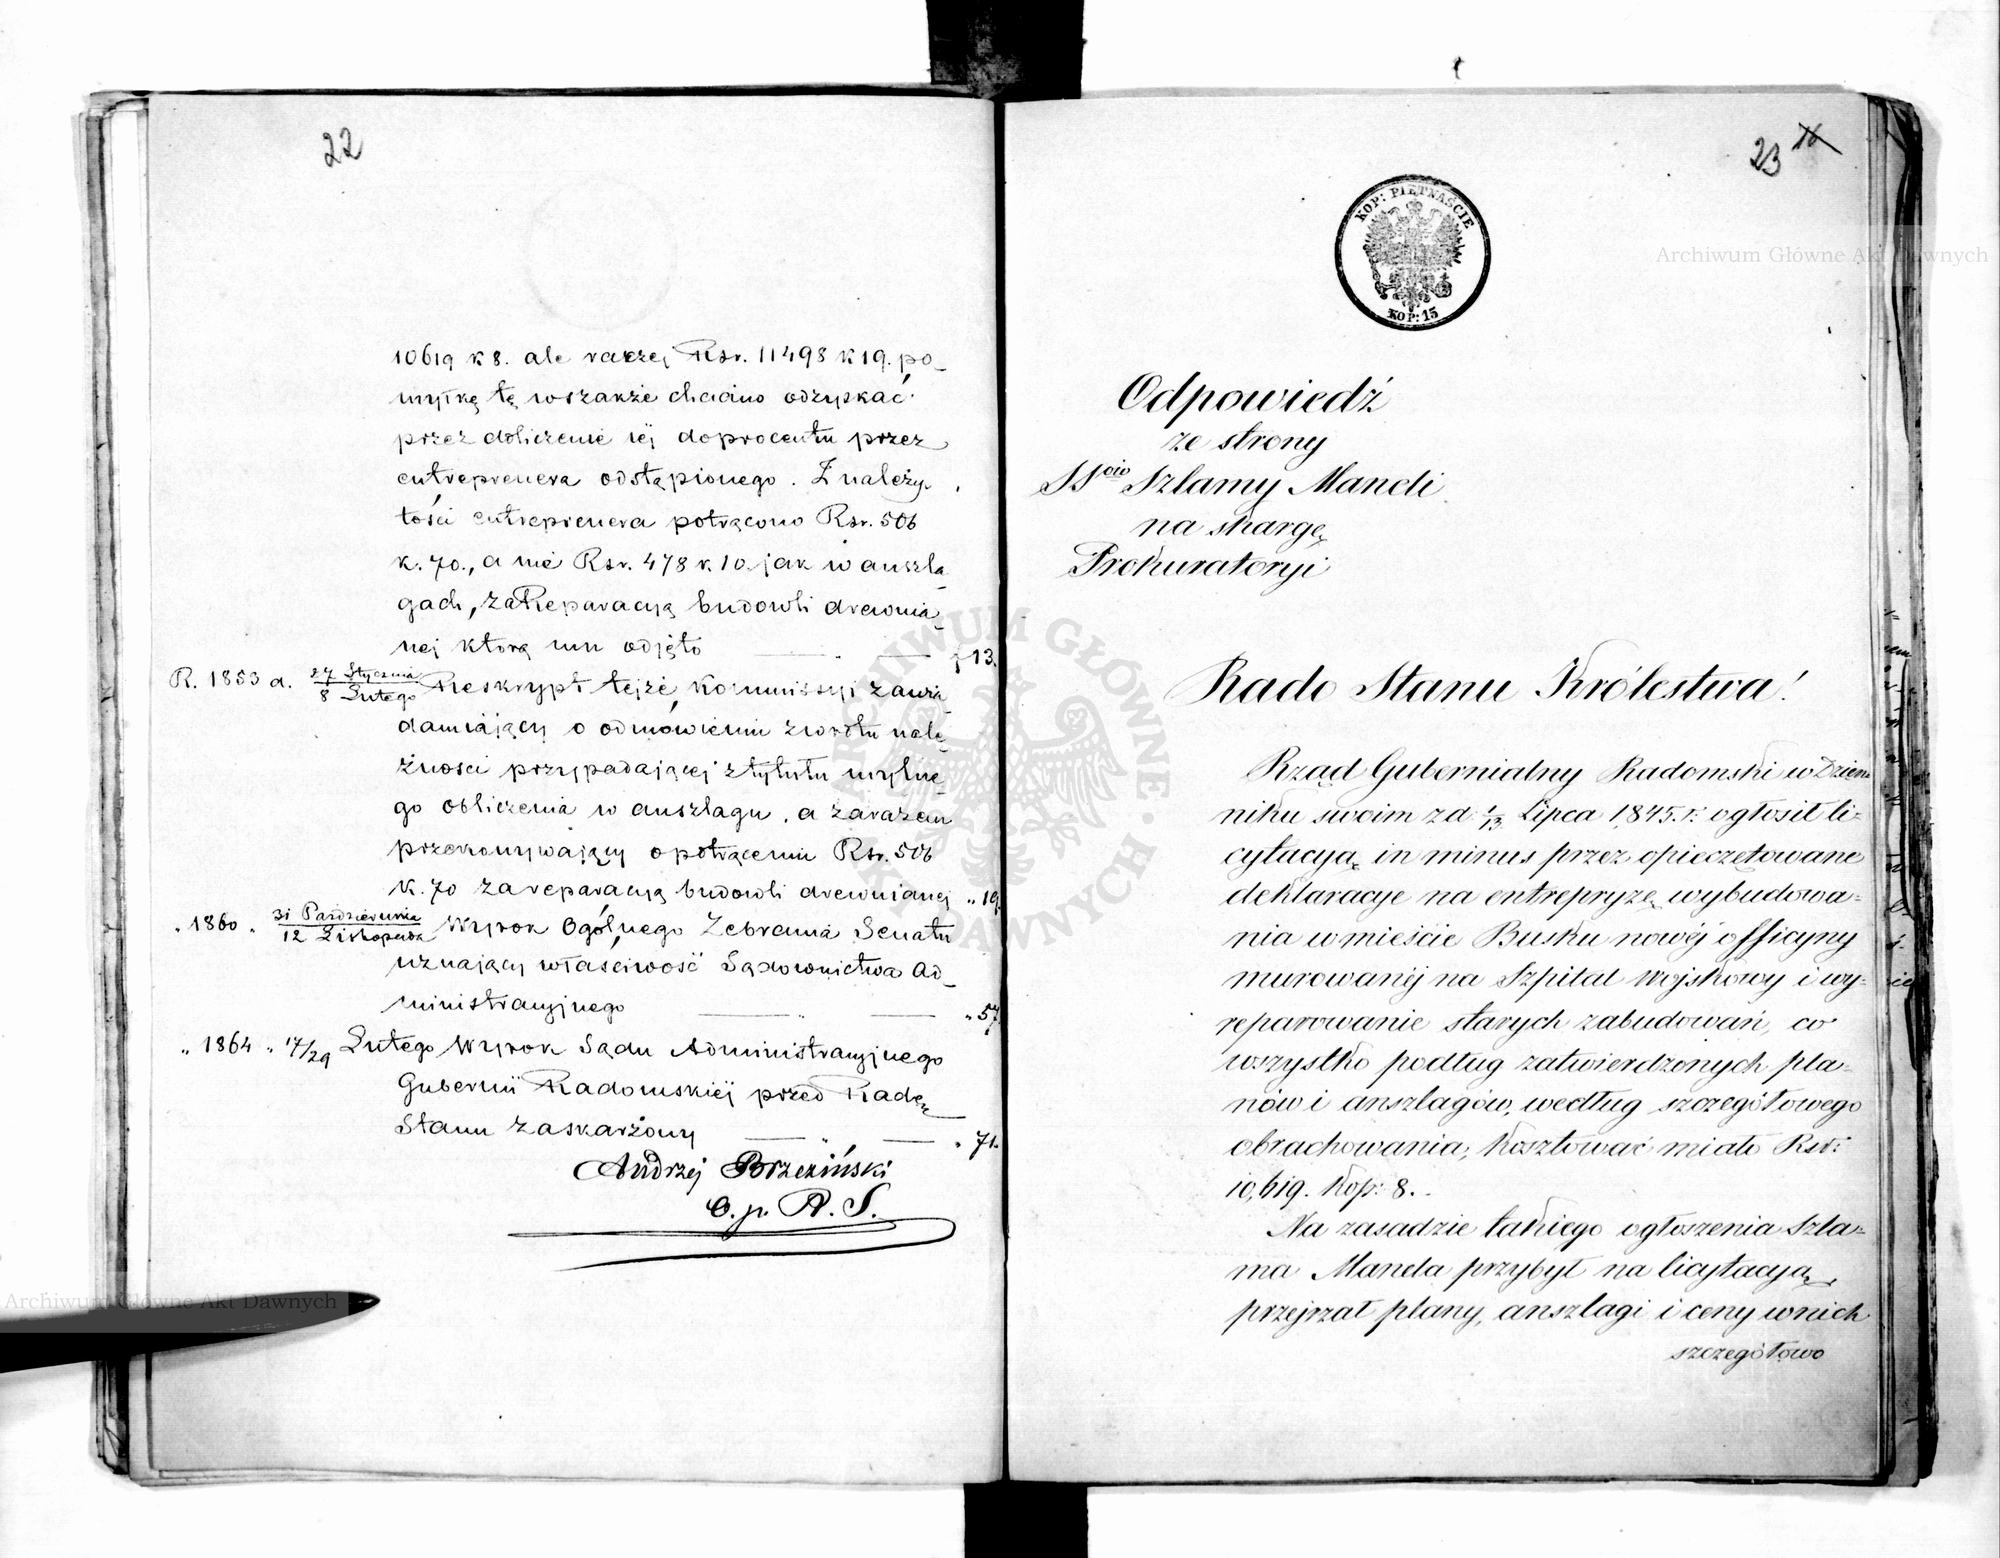 22
10619 k 8. ale raczej Rsr. 11498 k 19. po_
myłkę tę wszakże chciano odzyskać
przez doliczenie iéj doprocentu przez
entreprenera odstąpionego. Z należy_
tości entreprenera potrącono Rsr. 506
k. 70., a nie Rsr. 478 k. 10. jak w anszla_
gach, za Reparacyą budowli drewnia_
néj którą mu odjęto f 13.
R. 1853 d. 27 Stycznia / 8 Lutego Reskrypt tejże Kommissyi zawia_
damiający o odmówieniu zwrotu nale_
żności przypadającej z tytułu mylne_
go obliczenia w anszlagu, a zarazem
przekonywający o potrąceniu Rsr. 506
k. 70 za reparacyą budowli drewnianej „ 19.
„ 1860 „ 31 Października / 12 Listopada Wyrok Ogólnego Zebrania Senatu
uznający właściwość Sądownictwa Ad_
ministracyjnego „ 57.
„ 1864 „ 17/29 Lutego Wyrok Sądu Administracyjnego
Gubernii Radomskiéj przed Radę
Stanu zaskarżony „ 71.
Andrzej Brzeziński
O. p. R. S.
23
KOP: PIĘTNAŚCIE
KOP: 15
Odpowiedź
ze strony
SSów Szlamy Mandi
na skargę
Prokuratoryi
Rado Stanu Królestwa!
Rząd Gubernialny Radomski w Dzien
niku swoim z d. 1/13 Lipca 1845. r. ogłosił li=
cytacyą in minus przez opieczętowane
deklaracye na entrepryzę wybudowa=
nia w mieście Busku nowéj officyny
murowanéj na Szpital Wojskowy i wy=
reparowanie starych zabudowań, co
wszystko podług zatwierdzonych pla=
nów i anszlagów, według szczegółowego
obrachowania, kosztować miało Rsr:
10,619. Kop: 8.
Na zasadzie takiego ogłoszenia Szla=
ma Manela przybył na licytacyą,
przejrzał plany, anszlagi i ceny w nich
szczegółowo
Archiwum Główne Akt Dawnych
Archiwum Główne Akt Dawnych
ARCHIWUM GŁÓWNE AKT DAWNYCH